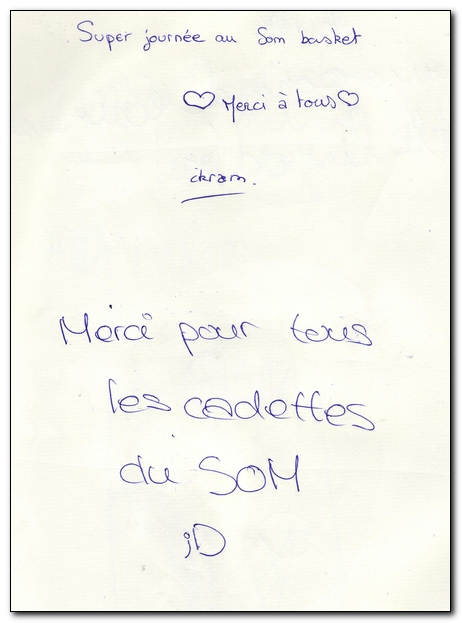 Super journée au Som basket
♡ Merci à tous ♡
ikram.
Merci pour tous
les cadettes
du SOM
;D